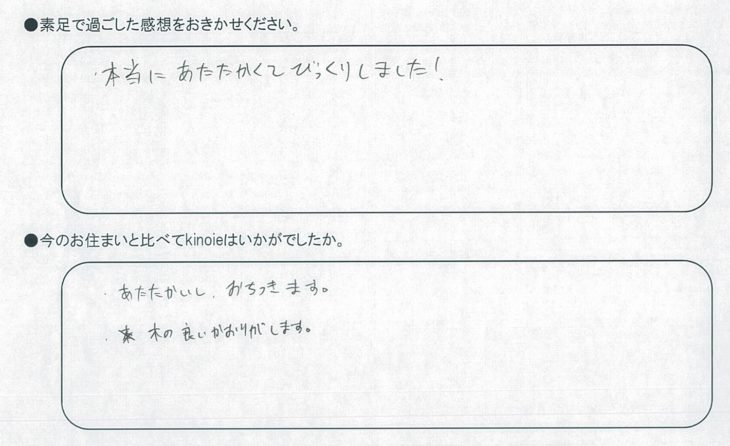 ●素足で過ごした感想をおきかせください。
・本当に あたたかくて びっくりしました!
●今のお住まいと比べてkinoieはいかがでしたか。
・あたたかいし、おちつきます。
・木の良いかおりがします。